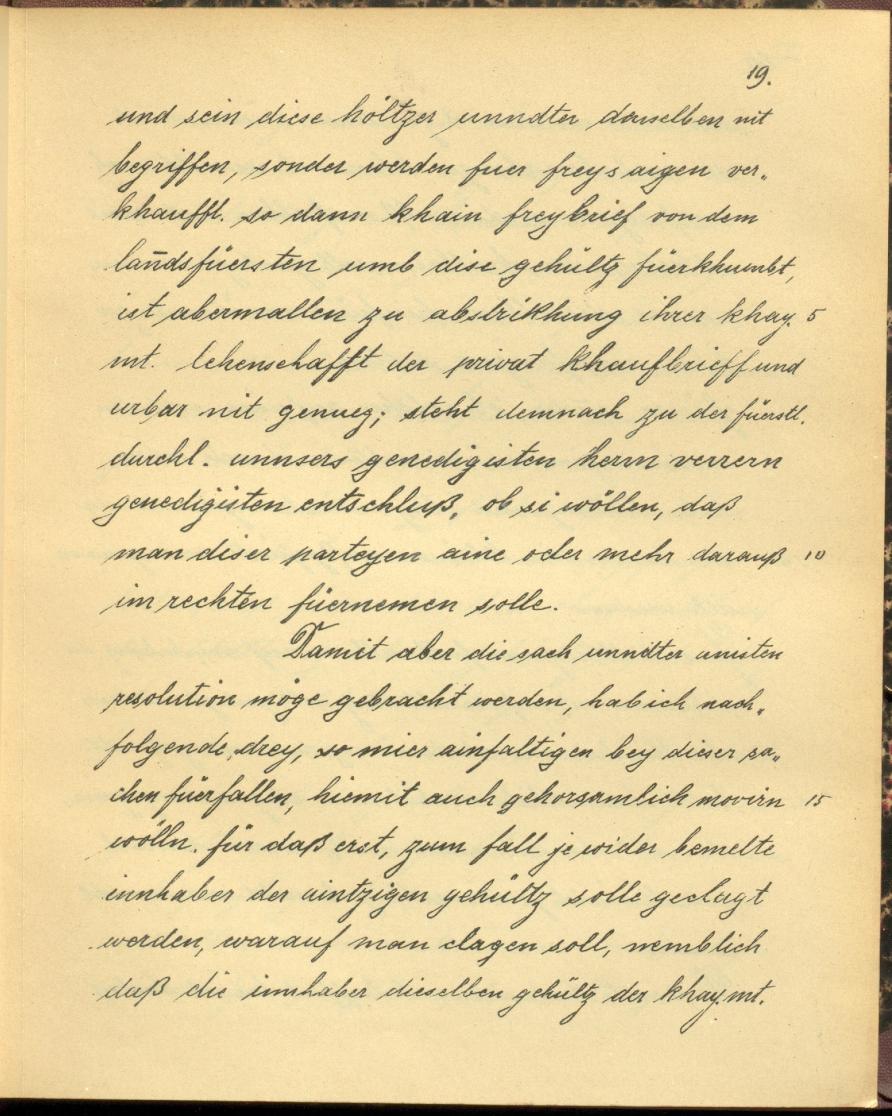 19.
und sein diese höltzer unndter derselben nit
begriffen, sonder werden fuer freys aigen ver„
khaufft. so dann khain freybrief von dem
lan̄dsfüersten umb dise gehültz fürkhumbt,
ist abermallen zu abstrikhung ihrer khay. 5
mt. lehenschafft der privat khaufbrieff und
urbar nit genueg; steht demnach zu der fürstl.
durchl. unnsers genedigisten herrn verrern
genedigisten entschluß, ob si wöllen, daß
man diser parteyen aine oder mehr darauß 10
im rechten füernemen solle.
Damit aber die sach unndter ainsten
resolution möge gebracht werden, hab ich nach„
folgende drey, so mier ainfaltigen bey dieser sa„
chen fürfallen, hiemit auch gehorsamlich movirn 15
wölln. für daß erst, zum fall je wider bemelte
innhaber der aintzigen gehültz solle geclagt
werden, warauf man clagen soll, nemblich
daß die innhaber dieselben gehültz der khay. mt.